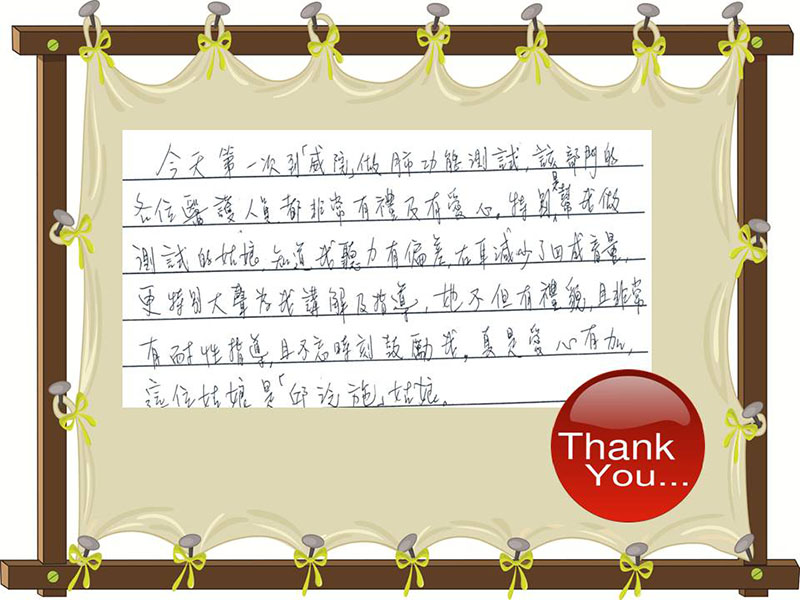 今天第一次到「威院」做肺功能測試,該部門的
各位醫護人員都非常有禮及有愛心。特別是幫我做
測試的姑娘,知道我聽力有偏差,右耳減少了四成音量,
更特別大聲為我講解及指導,她不但有禮貌,且非常
有耐性指導,且不忘時刻鼓勵我。真是愛心有加,
這位姑娘是「邱 施」姑娘。
Thank
You...